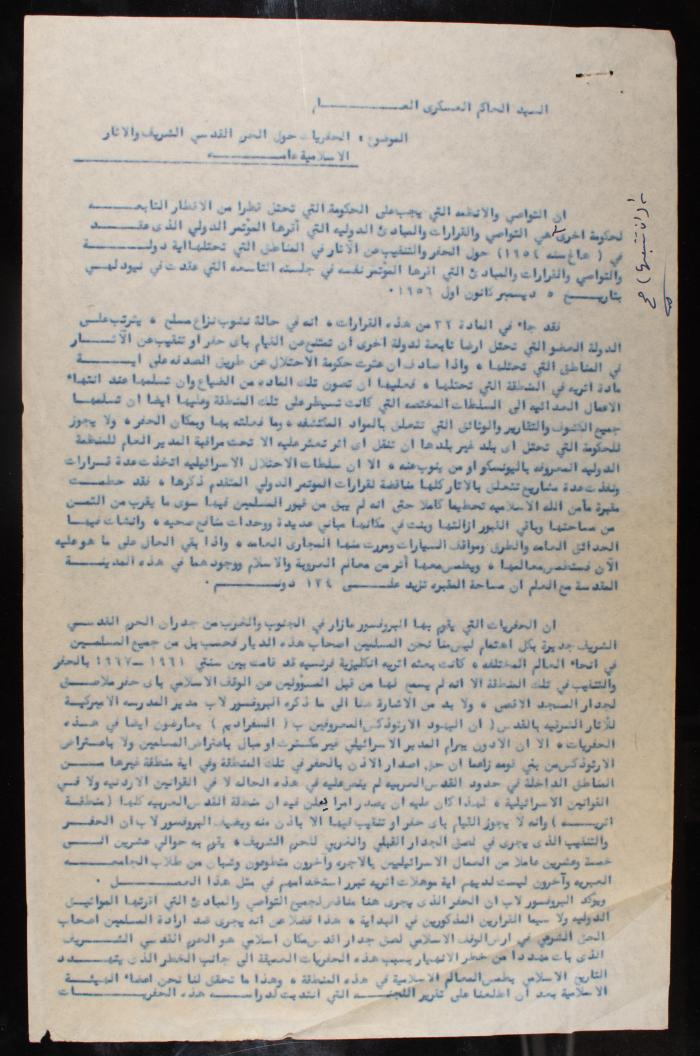 السيد الحاكم العسكرى العـــــــــــام
الموضوع : الحفريات حول الحرم القدسي الشريف والاثار
الاسلامية عامـــــــه
ان التواصي والانظمه التي يجب على الحكومة التي تحتل قطرا من الاقطار التابعـــه
لحكومة اخرى هي التواصي والقرارات والمبادئ الدوليه التي أقرها المؤتمر الدولي الذى عقـــد
في ( هاغ سنه ١٩٥٤) حول الحفر والتنقيب عن الآثار في المناطق التي تحتلها اية دولـــة
والتواصي والقرارات والمبادئ التي اقرها المؤتمر نفسه في جلسته التاسعه التي عقدت في نيودلهي
بتاريـــخ ٥ ديسمبر كانون اول ١٩٥٦.
فقد جاء في المادة ٣٢ من هذه القرارات ، انه في حالة نشوب نزاع مسلح ، يترتب على
الدولة العضو التي تحتل ارضا تابعة لدولة اخرى ان تمتنع عن القيام باى حفر او تنقيب عن الآثـــار
في المناطق التي تحتلها ، واذا صادف ان عثرت حكومة الاحتلال عن طريق الصدفه على ايـــة
مادة اثريه في المنطقة التي تحتلها ، فعليها ان تصون تلك الماده من الضياع وان تسلمها عند انتهاء
الاعمال العدائيه الى السلطات المختصه التي كانت تسيطر على تلك المنطقة وعليها ايضا ان تسلمها
جميع الكشوف والتقارير والوثائق التي تتعلق بالمواد المكتشفه ، وما فعلته بها وبمكان الحفر ، ولا يجوز
للحكومة التي تحتل اى بلد غير بلدها ان تنقل اى اثر تعثر عليه الا تحت مراقبة المدير العام للمنظمة
الدوليه المعروفه باليونسكو او من ينوب عنه ، الا ان سلطات الاحتلال الاسرائيليه اتخذت عدة قـرارات
ونفذت عدة مشاريع تتعلق بالاثار كلها مناقضة لقرارات المؤتمر الدولي المتقدم ذكرها ، فقد حطمـــت
مقبرة مأمن الله الاسلاميه تحطيما كاملا حتى انه لم يبق من قبور المسلمين فيها سوى ما يقرب من الثمن
من مساحتها وباقي القبور ازالتها وبنت في مكانها مباني عديدة ووحدات منافع صحيه ، وانشات فيهـا
الحدائق العامه والطرق ومواقف السيارات ومررت منها المجارى العامه ، واذا بقي الحال على ما هو عليه
الآن فستطمس معالمها ، ويطمس معها أثر من معالم العروبة والاسلام ووجودهما في هذه المدينـــة
المقدسة مع العلم ان مساحة المقبره تزيد علـــى ١٢٤ دونـــم .
ان الحفريات التي يقوم بها البروفسور مازار في الجنوب والغرب من جدران الحرم القدســـي
الشريف جديرة بكل اهتمام ليس منا نحن المسلمين اصحاب هذه الديار فحسب بل من جميع المسلمـــين
في انحاء العالم المختلفه ، كانت بعثه اثريه انكليزية فرنسيه قد قامت بين سنتي ١٩٦١ــ١٩٦٧ بالحفر
والتنقيب في تلك المنطقة الا انه لم يسمح لها من قبل المسؤولين عن الوقف الاسلامي باى حفر ملاصـــق
لجدار المسجد الاقصى ، ولا بد من الاشارة هنا الى ما ذكره البروفسور لاب مدير المدرسه الاميركيـــة
للآثار الشرقيه بالقدس ( ان اليهود الارثوذكس المعروفين ب ( السفراديم ) يعارضون ايضا في هـــذه
الحفريات ، الا ان الادون بيرام المدير الاسرائيلي غير مكترث او مبال باعتراض المسلمين ولا باعتراض
الارثوذكس من بني قومه زاعما ان حق اصدار الاذن بالحفر في تلك المنطقة وفي اية منطقة غيرها مـــن
المناطق الداخلة في حدود القدس العربيه لم ينص عليه في هذه الحاله لا في القوانين الاردنيه ولا فـــي
القوانين الاسرائيلية ، لهذا كان عليه ان يصدر امرا يعلن فيه ان منطقة القدس العربيه كلها ( منطقـة
اثريـــه ) وانه لا يجوز القيام باى حفر او تنقيب فيها الا باذن منه ويضيف البروفسور لاب ان الحفـــر
والتنقيب الذى يجرى في لصق الجدار القبلي والغربي للحرم الشريف ، يقوم به حوالي عشرين الـــى
خمسة وعشرين عاملا من العمال الاسرائيليين بالاجره وآخرون متطوعون وشبان من طلاب الجامعـــه
العبريه وآخرون ليست لديهم اية موهلات اثريه تبرر استخدامهم في مثل هذا العمـــــل .
ويؤكد البروفسور لاب ان الحفر الذى يجرى هنا مناقض لجميع التواصي والمبادئ التي اقرتها المواثيـق
الدوليه ولا سيما القرارين المذكورين في البداية ، هذا فضلا عن انه يجرى ضد ارادة المسلمين اصحاب
الحق الشرعي في ارض الوقف الاسلامي لصق جدار اقدس مكان اسلامي هو الحرم القدسي الشـــريف
الذى بات مهددا من خطر الانهيار بسبب هذه الحفريات العميقة الى جانب الخطر الذى يتهـــدد
التاريخ الاسلامي بطمس المعالم الاسلامية في هذه المنطقة ، وهذا ما تحقق لنا نحن اعضاء الهيئـة
الاسلامية بعد أن اطلعنا على تقرير اللجنـــه التي انتدبت لدراســـه هذه الحفريـــات